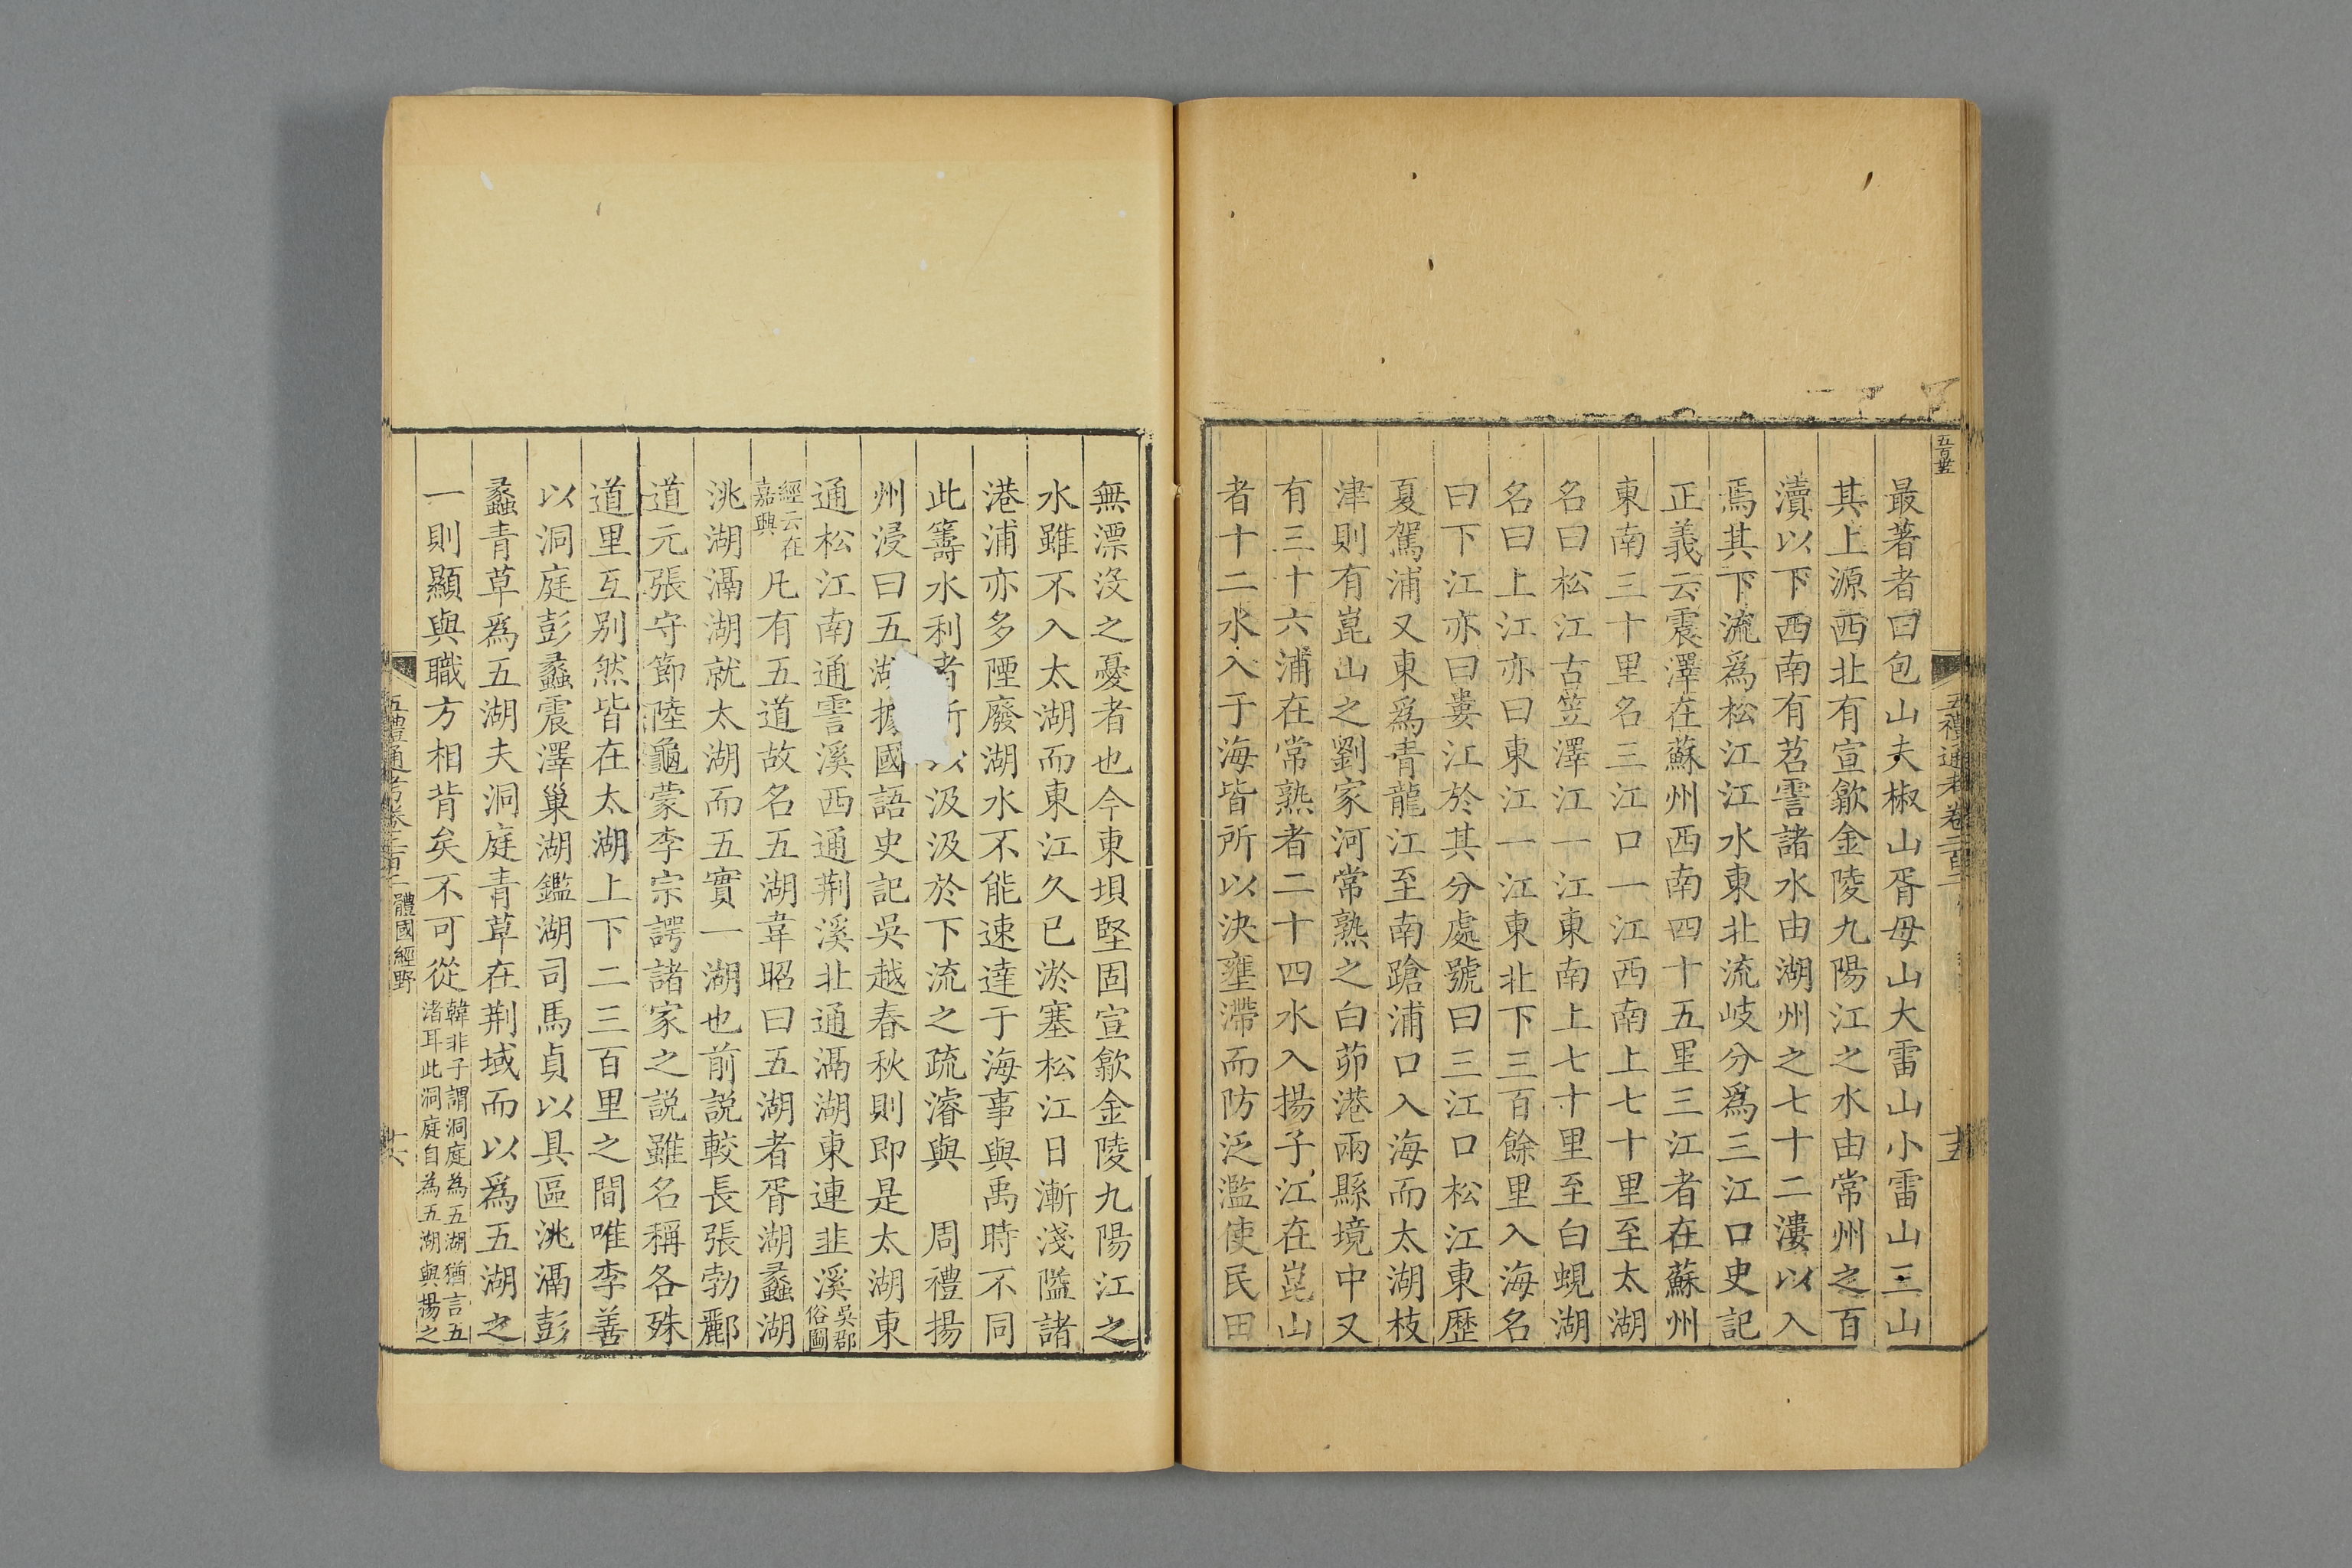 五百廿五
五禮通考卷二百一
十五
最著者曰包山夫椒山胥母山大雷山小雷山三山
其上源西北有宣歙金陵九陽江之水由常州之百
瀆以下西南有苕霅諸水由湖州之七十二漊以入
焉其下流爲松江江水東北流岐分爲三江口史記
正義云震澤在蘇州西南四十五里三江者在蘇州
東南三十里名三江口一江西南上七十里至太湖
名曰松江古笠澤江一江東南上七十里至白蜆湖
名曰上江亦曰東江一江東北下三百餘里入海名
曰下江亦曰婁江於其分處號曰三江口松江東歷
夏駕浦又東爲青龍江至南蹌浦口入海而太湖枝
津則有崑山之劉家河常熟之白茆港兩縣境中又
有三十六浦在常熟者二十四水入揚子江在崑山
者十二水入于海皆所以決壅滯而防泛濫使民田
無漂沒之憂者也今東壩堅固宣歙金陵九陽江之
水雖不入太湖而東江久已淤塞松江日漸淺隘諸
港浦亦多陻廢湖水不能速達于海事與禹時不同
此籌水利者所以汲汲於下流之疏濬與 周禮揚
州浸曰五湖據國語史記吳越春秋則即是太湖東
通松江南通霅溪西通荆溪北通滆湖東連韭溪吳郡俗圖
經云在嘉興凡有五道故名五湖韋昭曰五湖者胥湖蠡湖
洮湖滆湖就太湖而五實一湖也前説較長張勃酈
道元張守節陸龜蒙李宗諤諸家之説雖名稱各殊
道里互别然皆在太湖上下二三百里之間唯李善
以洞庭彭蠡震澤巢湖鑑湖司馬貞以具區洮滆彭
蠡青草爲五湖夫洞庭青草在荆域而以爲五湖之
一則顯與職方相背矣不可從韓非子謂洞庭為五湖猶言五渚耳此洞庭自為五湖與揚之
五禮通考卷二百一 體國經野
十六